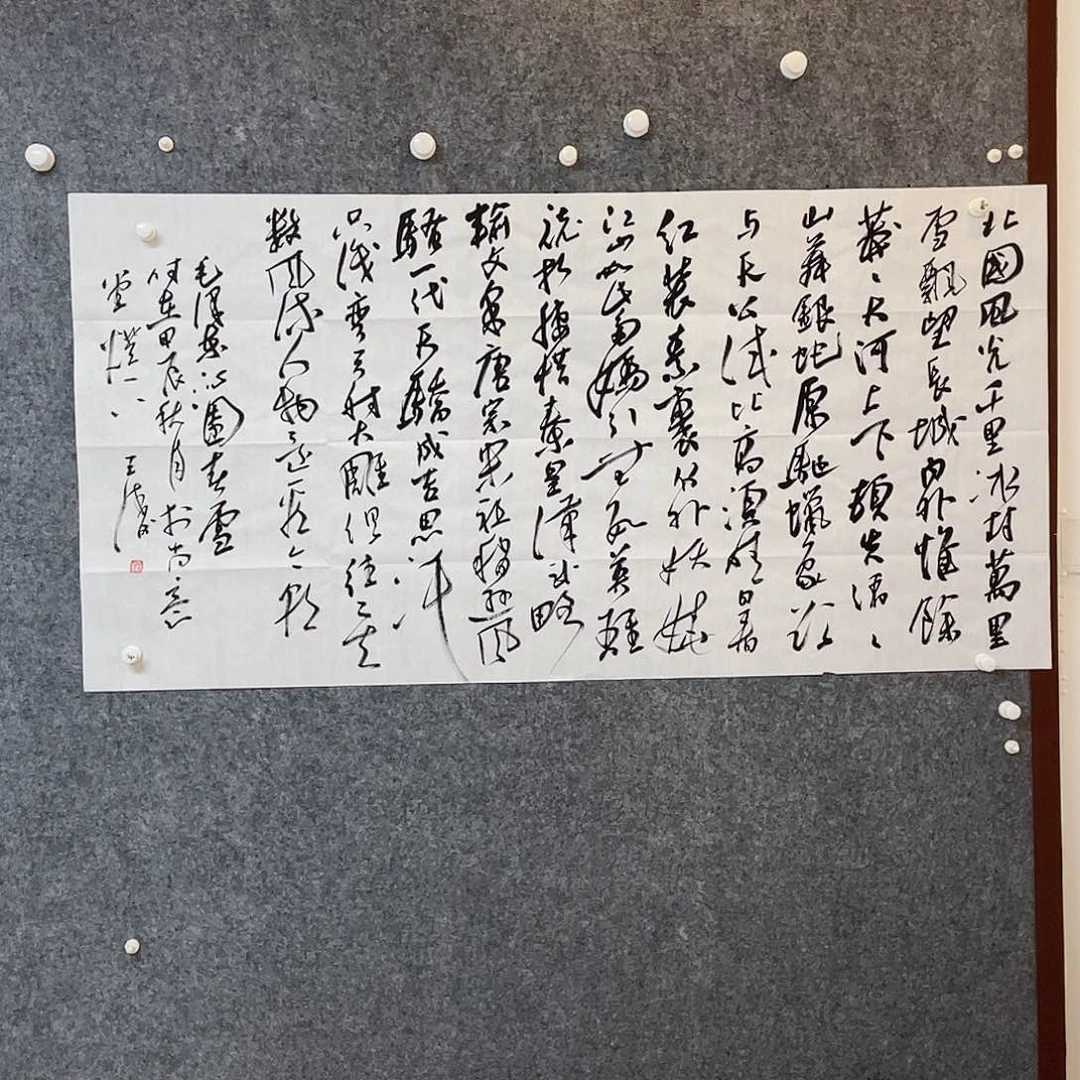 北國風光千里冰封萬里
雪飄望長城內外惟餘
莽〻大河上下頓失滔〻
山舞銀蛇原馳蠟象欲
与天公試比高須晴日看
红裝素裹分外妖嬈
江山如此多嬌引無數英雄
競折腰惜秦皇漢武略
輸文采唐宗宋祖稍遜風
騷一代天驕成吉思汗
只識彎弓射大雕俱往矣
數風流人物還看今朝
毛澤東沁園春雪
時在甲辰秋月於尚意
堂 王